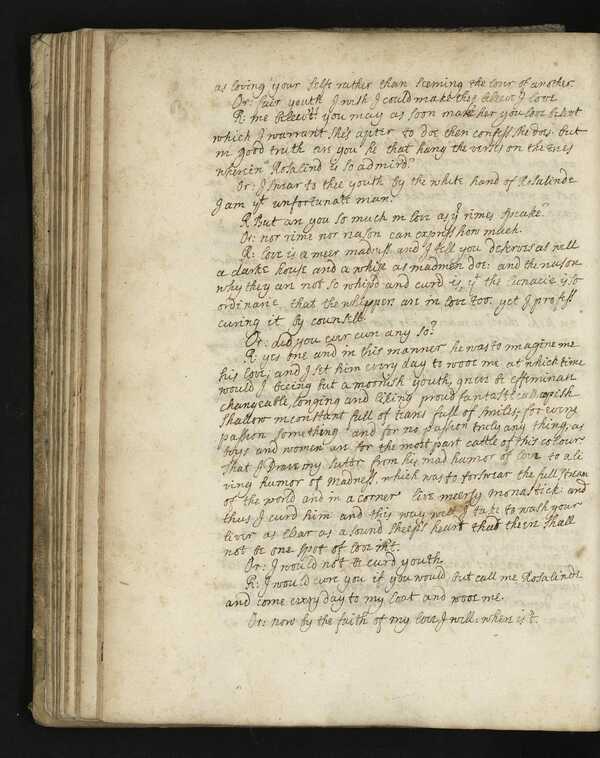 as loving your selfe rather than seeming the lover of another.
Or: fair youth I wish I could make thee believe I love
R: me beleive? you may as soon make her you love belei it
which I warrant she's apter to doe then confess she does. but
in good truth are you he that hang the verses on the trees
wherein Rosalind is so admird?
Or: I swear to thee youth by the white hand of Rosalinde
I am yt unfortunate man.
R But are you so much in love as yr rimes speake?
Or: nor rime nor reason can express how much.
R: love is a meer madness and I tell you deserves as well
a darke house and a whipe as madmen doe: and the reason
why they are not so whip'd and curd is, yt the lunacie is so
ordinarie, that the whippers are in love too. yet I profess
curing it by counsell.
Or: did you ever cure any so?
R: yes one and in this manner he was to imagine me
his love; and I set him every day to wooe me at which time
would I beeing but a moonish youth, greve be effeminate
changeable, longing and liking proud fantasticall apish
shallow inconstant full of tears full of smiles; for every
passion something and for no passion truly any thing, as
boys and women are for the most part cattle of this colour
that I drave my sutor from his mad humor of love to a li
ving humor of madness. which was to forswear the full stream
of the world and in a corner live meerly monastick: and
thus I curd him and this way will I take to wash your
liver as clear as a sound sheep's heart that there shall
not be one spot of love in't.
Or: I would not be curd youth.
R: I would cure you if you would but call me Rosalinde
and come every day to my coat and wooe me.
Or: now by the faith of my love I will: where is't.